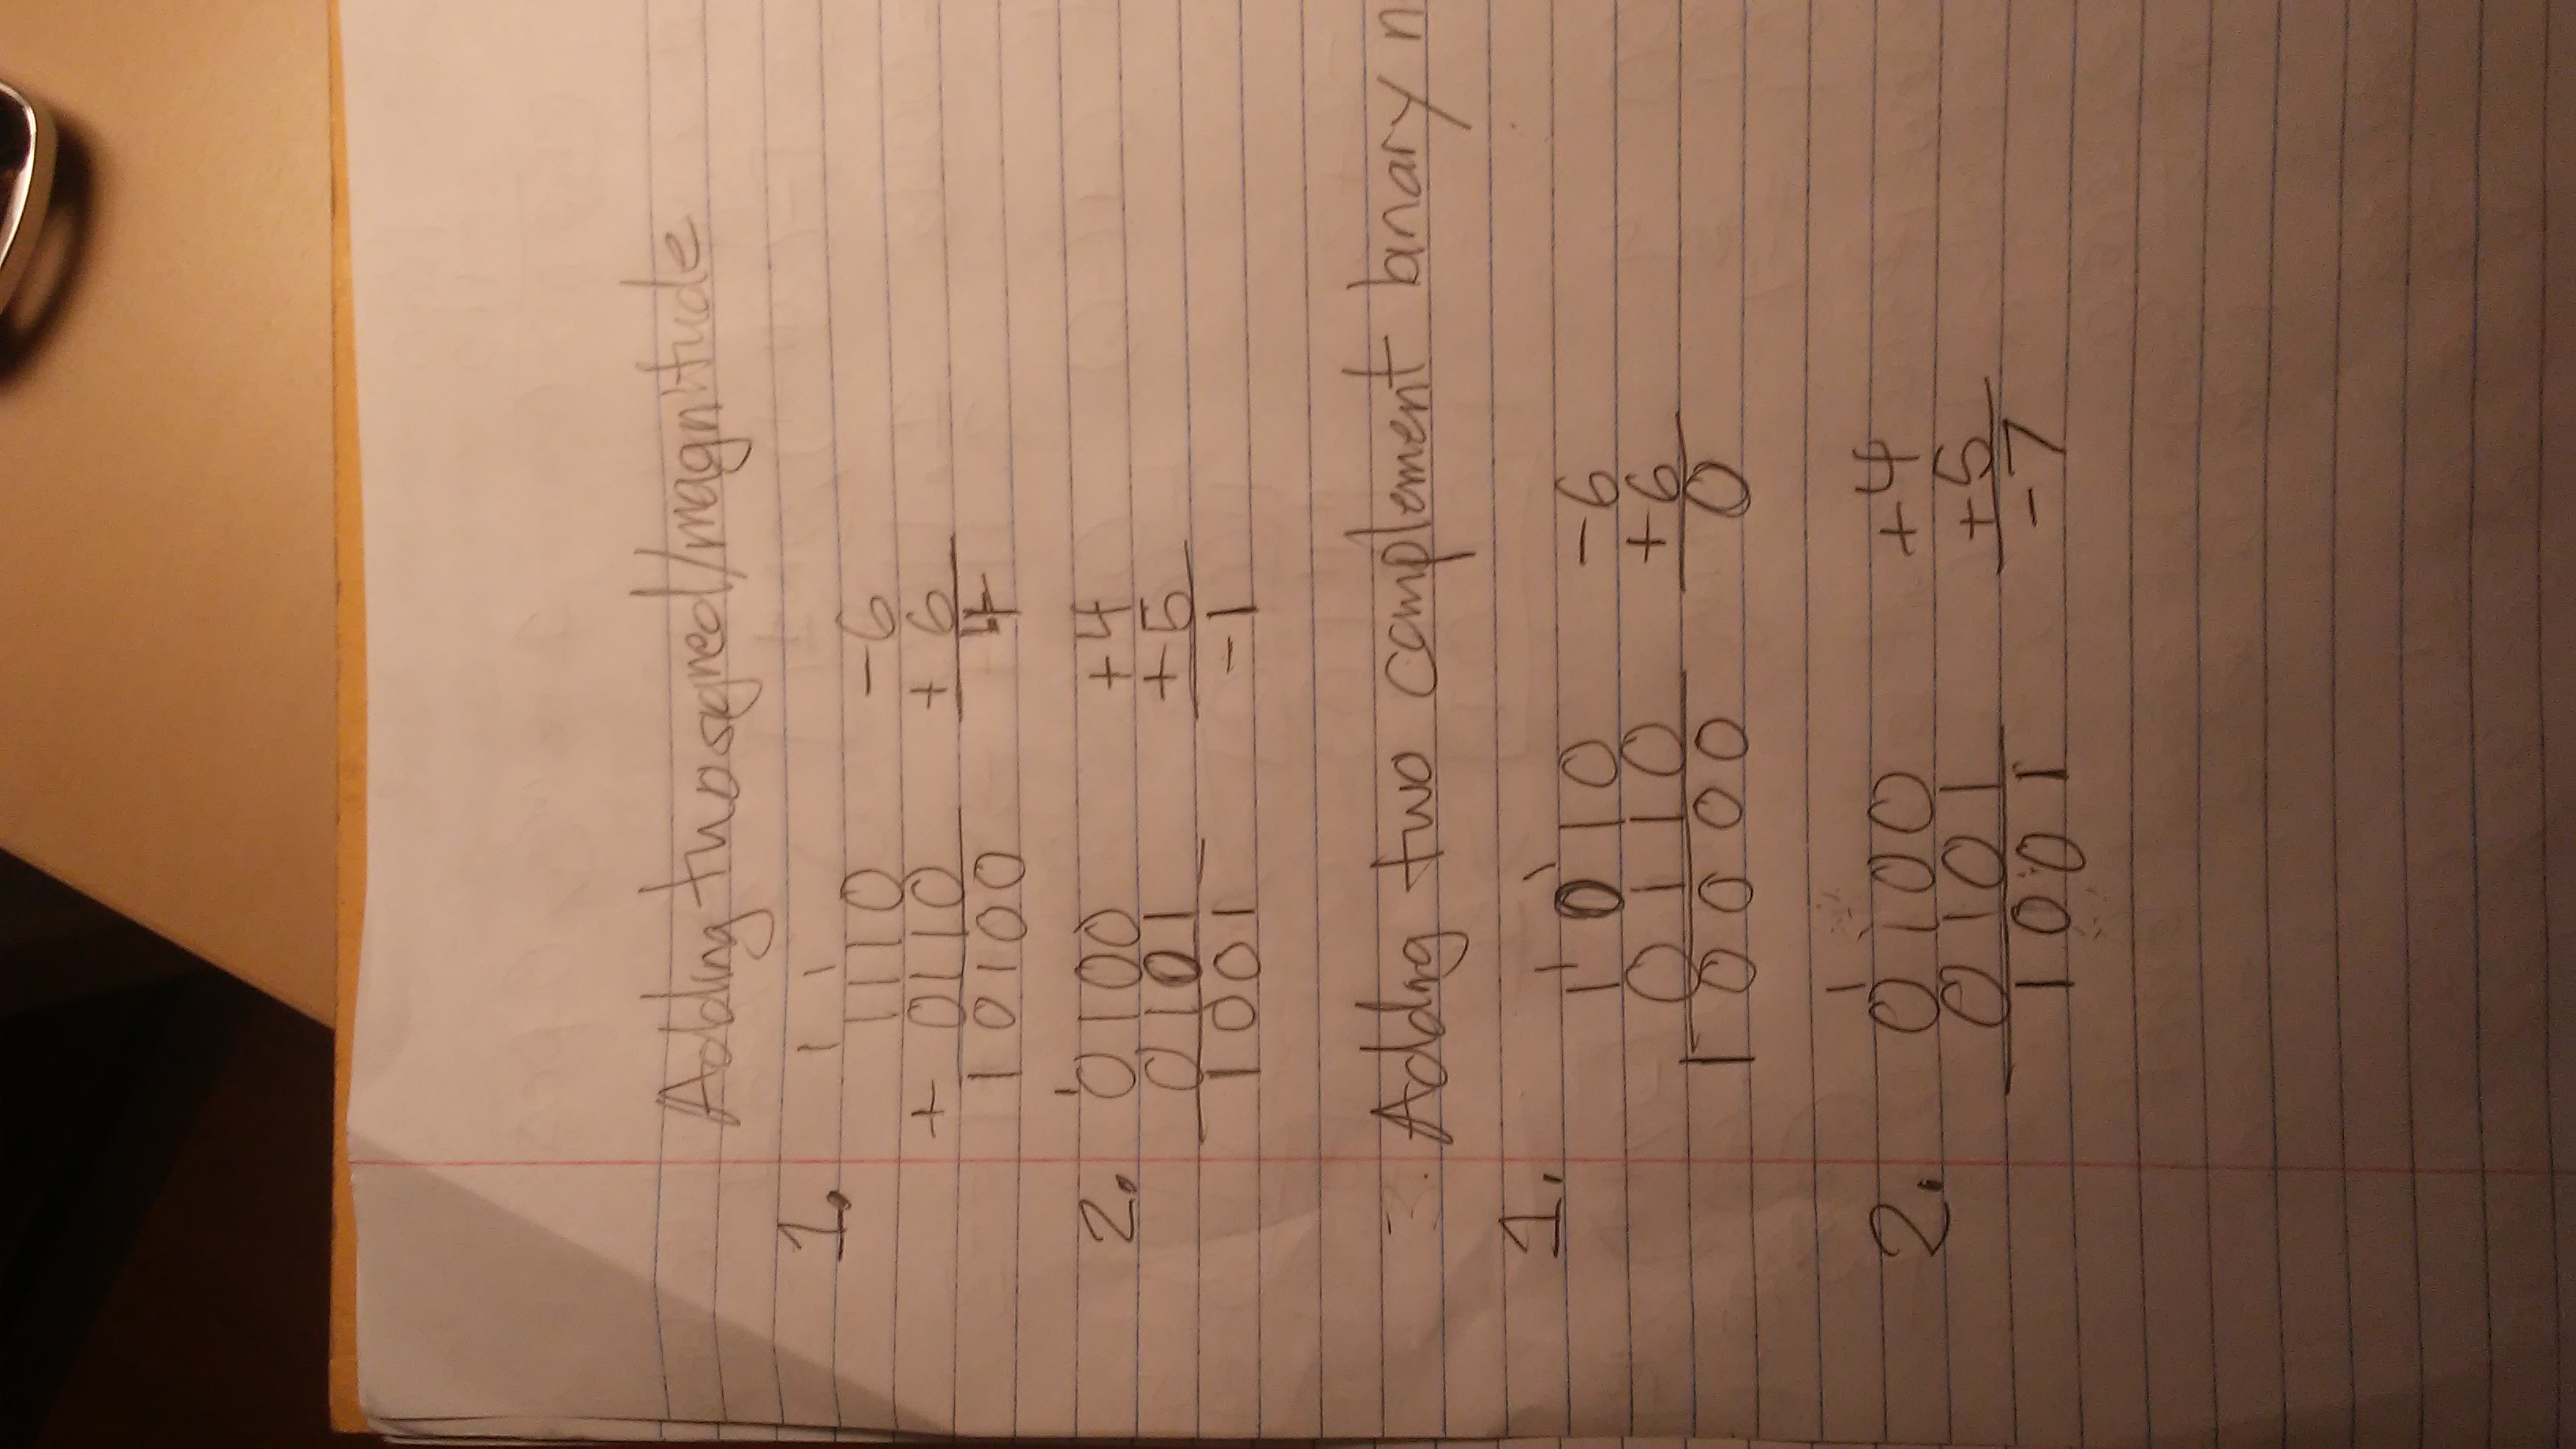 Adding two signed/magnitude
1. 1 1
1110 -6
+ 0110 + 6
10100 4
2. 1
0100 +4
0101 +5
1001 -1
3. Adding two complement binary n
1. 1 1
1010 -6
0110 +6
10000 0
2. 1
0100 +4
0101 +5
1001 -7